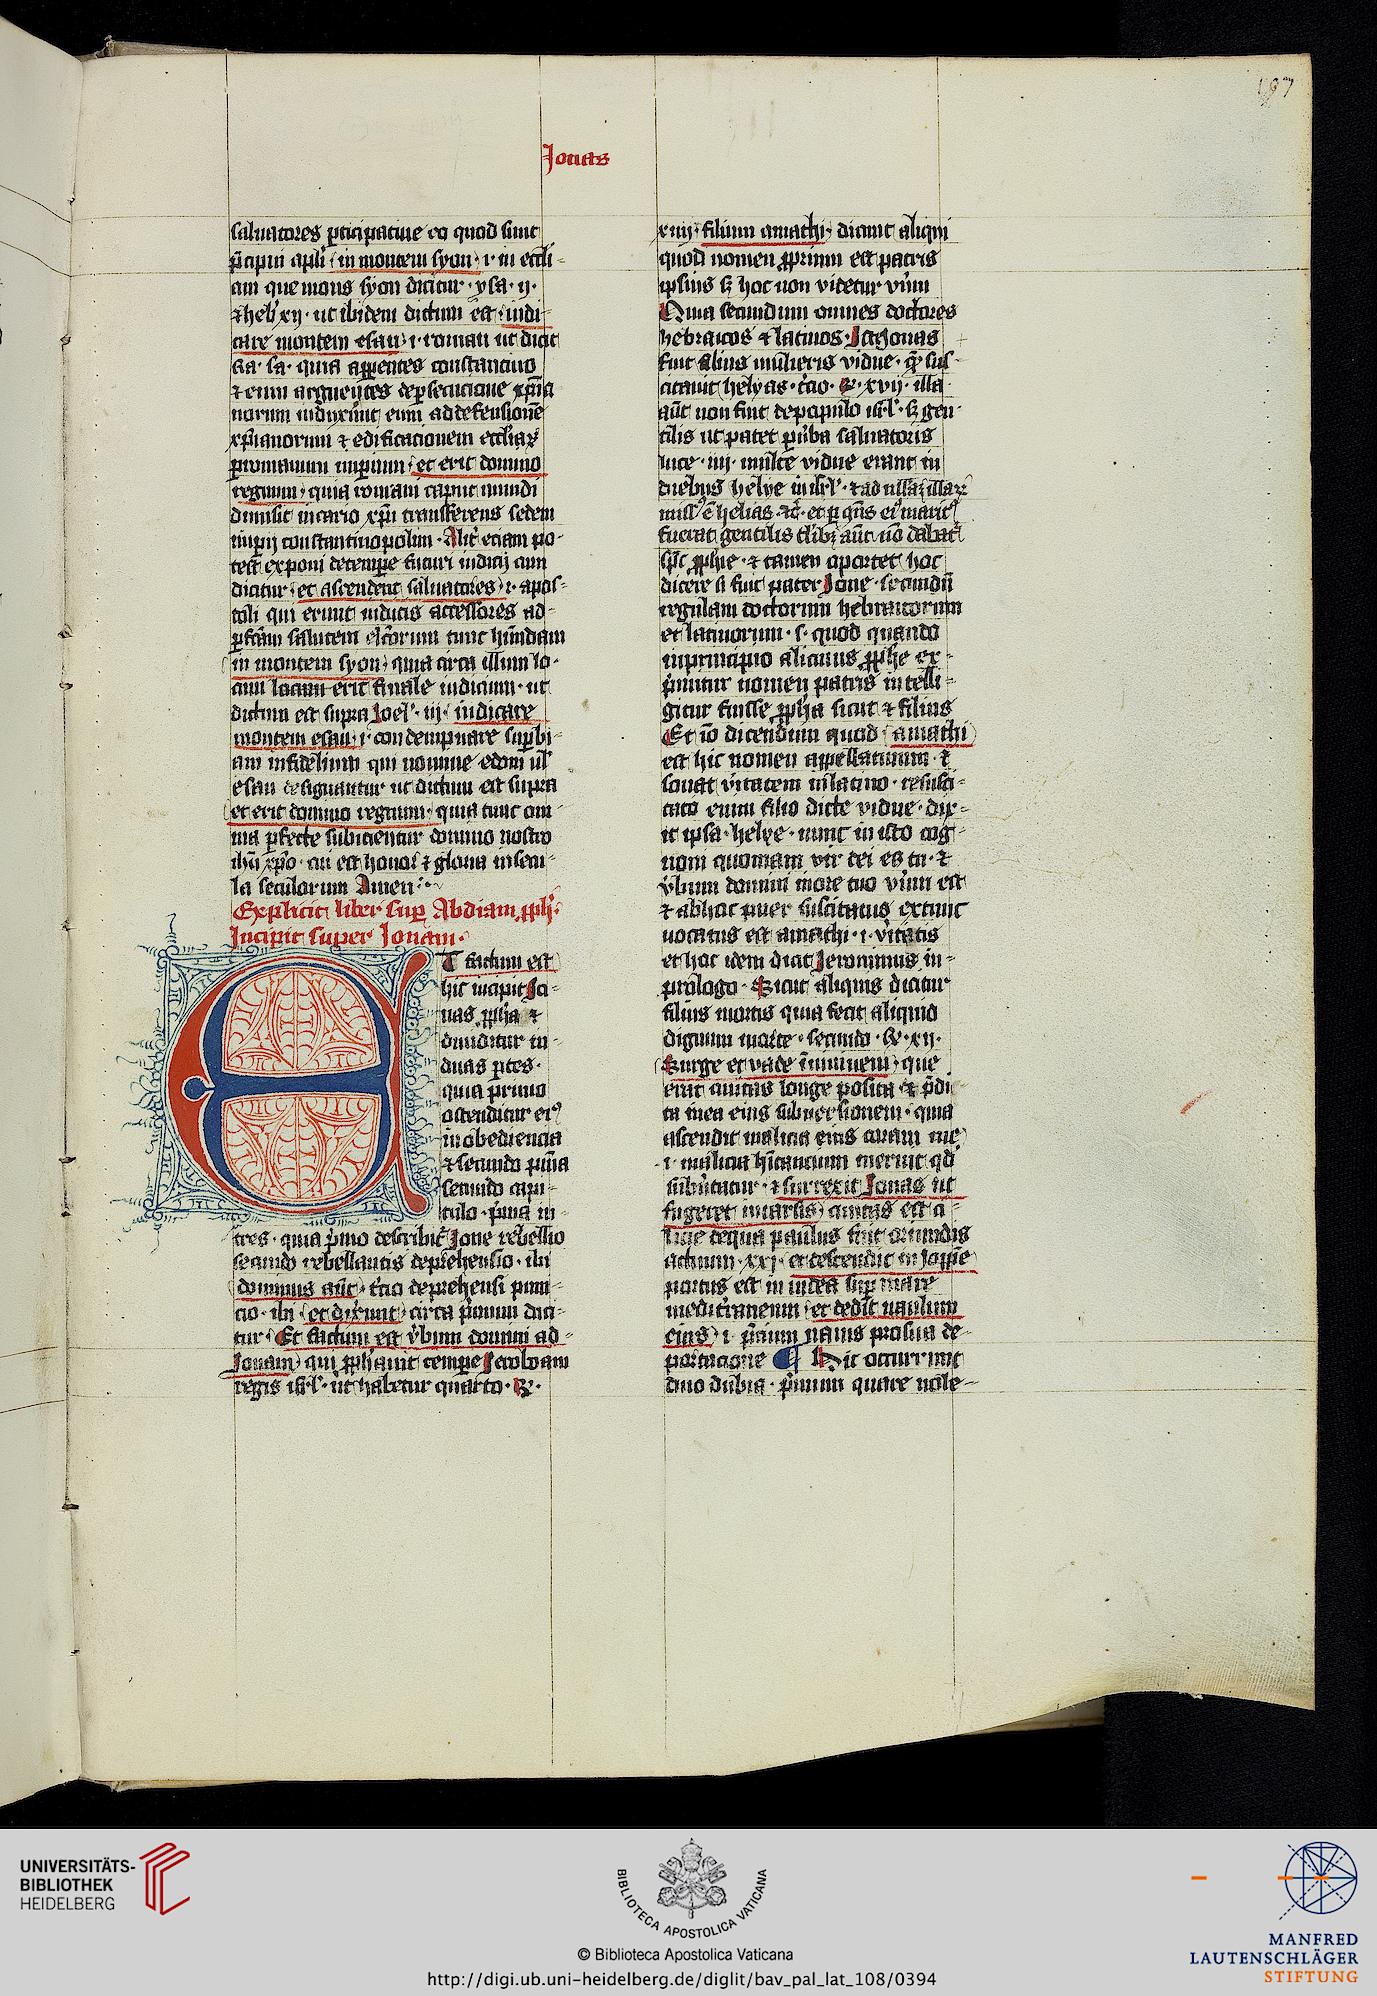 197
Jonas
saluatores pticipatiue eo quod sunt
pͥcipui apłi in montem syon ·i· in eccłi-
am que mons syon dicitur · ysa · ij ·
⁊ heb̕ xij · ut ibidem dictum est · iudi-
care montem esau ·i· romam ut dicit
Ra · Sa · quia apparentes constantino
⁊ eum arguentes de psecucione xpͥia
norum induxerunt eum ad defensionē
xpianorum ⁊ edificacionem eccłiaꝝ
p romanum imperium et erit domino
regnum quia romam caput mundi
dimisit uicario xpi transferens sedem
imperij constantinopolim · Alit̕ eciam po-
test exponi de tempore futuri iudicij cum
dicitur et ascendent saluatores ·i· apos-
toli qui erunt iudicis accessores ad
pfectam salutem elc̄orum tunc habendam
in montem syon quia circa illum lo-
cum locum erit finale iudicium · ut
dictum est supra Joel̕ · iij · iudicare
montem esau ·i· condempnare superbi-
am infidelium qui nomine edom ul̕
esau designantur ut dictum est supra
et erit domino regnum · quia tunc om
nia pfecte subicientur domino nostro
ihū xpo · cui est honor ⁊ gloria in secu-
la seculorum Amen
Explicit liber sup Abdiam pph̕ ·
Incipit super Jonam ·
ET factum est
hic incipit Jo-
nas ppha ⁊
diuiditur in
duas ptes ·
quia primo
ostenditur eiꝰ
inobediencia
⁊ secundo pͥma
secundo capi-
tulo · pͥma in
tres · quia pͥmo describit̕ Jone rebellio
secundo rebellantis deprehensio · ibi
dominus aūt t̕cio deprehensi puni-
cio · ibi et dixerunt circa pͥmum dici-
tur Et factum est v̕bum domini ad
Jonam qui pphauit tempore Jeroboam
regis isr̄l · ut habetur quarto · R ·
xiiij filium amathi dicunt aliqui
quod nomen pprium est patris
ipsius sꝫ hoc non videtur v̕um
Quia secundum omnes doctores
hebraicos ⁊ latinos · Iste Jonas
fuit filius mulieris vidue · quem sus-
citauit helyas · t̕cio · R · xvij · illa
aūt non fuit de populo isr̄l · sꝫ gen-
tilis ut patet p v̕ba saluatoris
luce · iiij · multe vidue erant in
diebus helye in isr̄l · ⁊ ad nullaꝫ illaꝝ
miss̕ ē helias ⁊c̕ · et p 9ns ei̕ marit̕
fuerat gentilis talibꝫ aūt nō dabat̕
spc̄ pphie · ⁊ tamen oportet hoc
dicere si fuit pater Jone · secundum
regulam doctorum hebraicorum
et latinorum · s · quod quando
in principio alicuius pphe ex-
pͥmitur nomen patris intelli-
gitur fuisse ppha sicut ⁊ filius
Et iō dicendum quod amathi
est hic nomen appellatiuum · ⁊
sonat v̕itatem in latino · resusci-
tato enim filio dicte vidue · dix-
it ipsa · helye · nunc in isto cog-
noui quoniam vir dei es tu · ⁊
v̕bum domini in ore tuo v̕um est
⁊ ab hac puer suscitatus extunc
uocatus est amathi · i · v̕itatis
et hoc idem dicit Jeronimus in
prologo · Sicut aliquis dicitur
filius mortis quia fecit aliquid
dignum morte · secundo · R · xij ·
Surge et vade ī niniuem que
erat ciuitas longe posita ⁊ pͥdi-
ta mea eius subuersionem · quia
ascendit malicia eius coram me
·i· malicia hītancium meruit qd̕
subuertatur · ⁊ surrexit Jonas ut
fugeret in tharsis ciuitas est ci-
licie de qua paulus fuit oriundus
actuum · xxj · et descendit in Joppe
portus est in iudea super mare
medit̕raneum et dedit naulum
eius ·i· pͥcium nauis pro sua de-
portacione ¶ Hic occurrunt
duo dubia · pͥmum quare uole-
UNIVERSITÄTS-
BIBLIOTHEK
HEIDELBERG
BIBLIOTECA APOSTOLICA VATICANA
© Biblioteca Apostolica Vaticana
http://digi.ub.uni-heidelberg.de/diglit/bav_pal_lat_108/0394
MANFRED
LAUTENSCHLÄGER
STIFTUNG